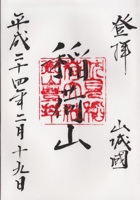 登拝
山城國
稲荷山
平成二十四年二月十九日